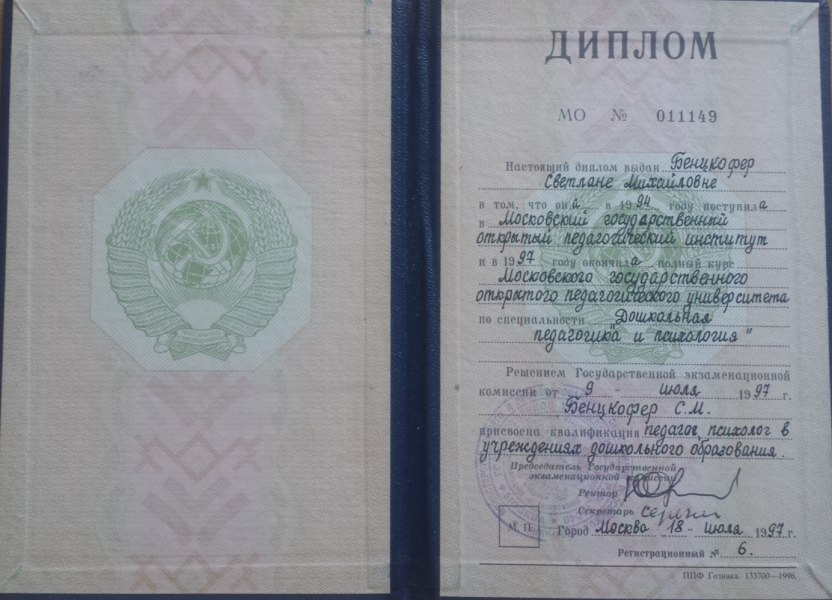 ДИПЛОМ
МО № 011149
Настоящий диплом выдан Бенцкофер
Светлане Михайловне
в том, что она в 1994 году поступила
в Московский государственный
открытый педагогический институт
и в 1997 году окончила полный курс
Московского государственного
открытого педагогического университета
по специальности „Дошкольная
педагогика и психология"
Решением Государственной экзаменационной
комиссии от 9 июля 1997 г.
Бенцкофер С.М.
присвоена квалификация педагог, психолог в
учреждениях дошкольного образования.
Председатель Государственной
экзаменационной комиссии
Ректор
Секретарь
М. П. Город Москва 18 июля 1997 г.
Регистрационный № 6.
ППФ Гознака. 133700—1996.